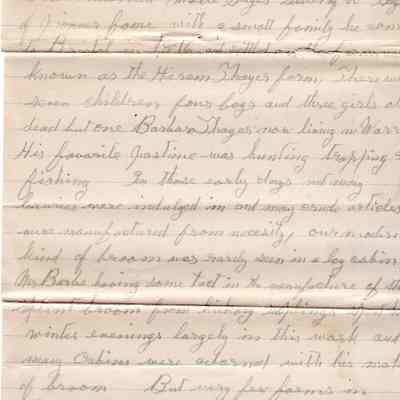 of pioneer fame with a small family he came
to Bristol in 18 and settled on the farm
known as the Hiram Thayer farm, There were
seven children four boys and three girls all
dead but one Barbara Thayer now living in Warr
His favorite Pastime was hunting trapping &
fishing In those early days not many
luxuries were indulged in and may crude articles
were manufactured from necesity, our modern
kind of broom was rarely seen in a log cabin
Mr Barbe having some tact in the manufacture of the
splint broom from hickory saplings
winter evenings largely in this work and
many Cabins were adorned with his make
of broom But very few farms in